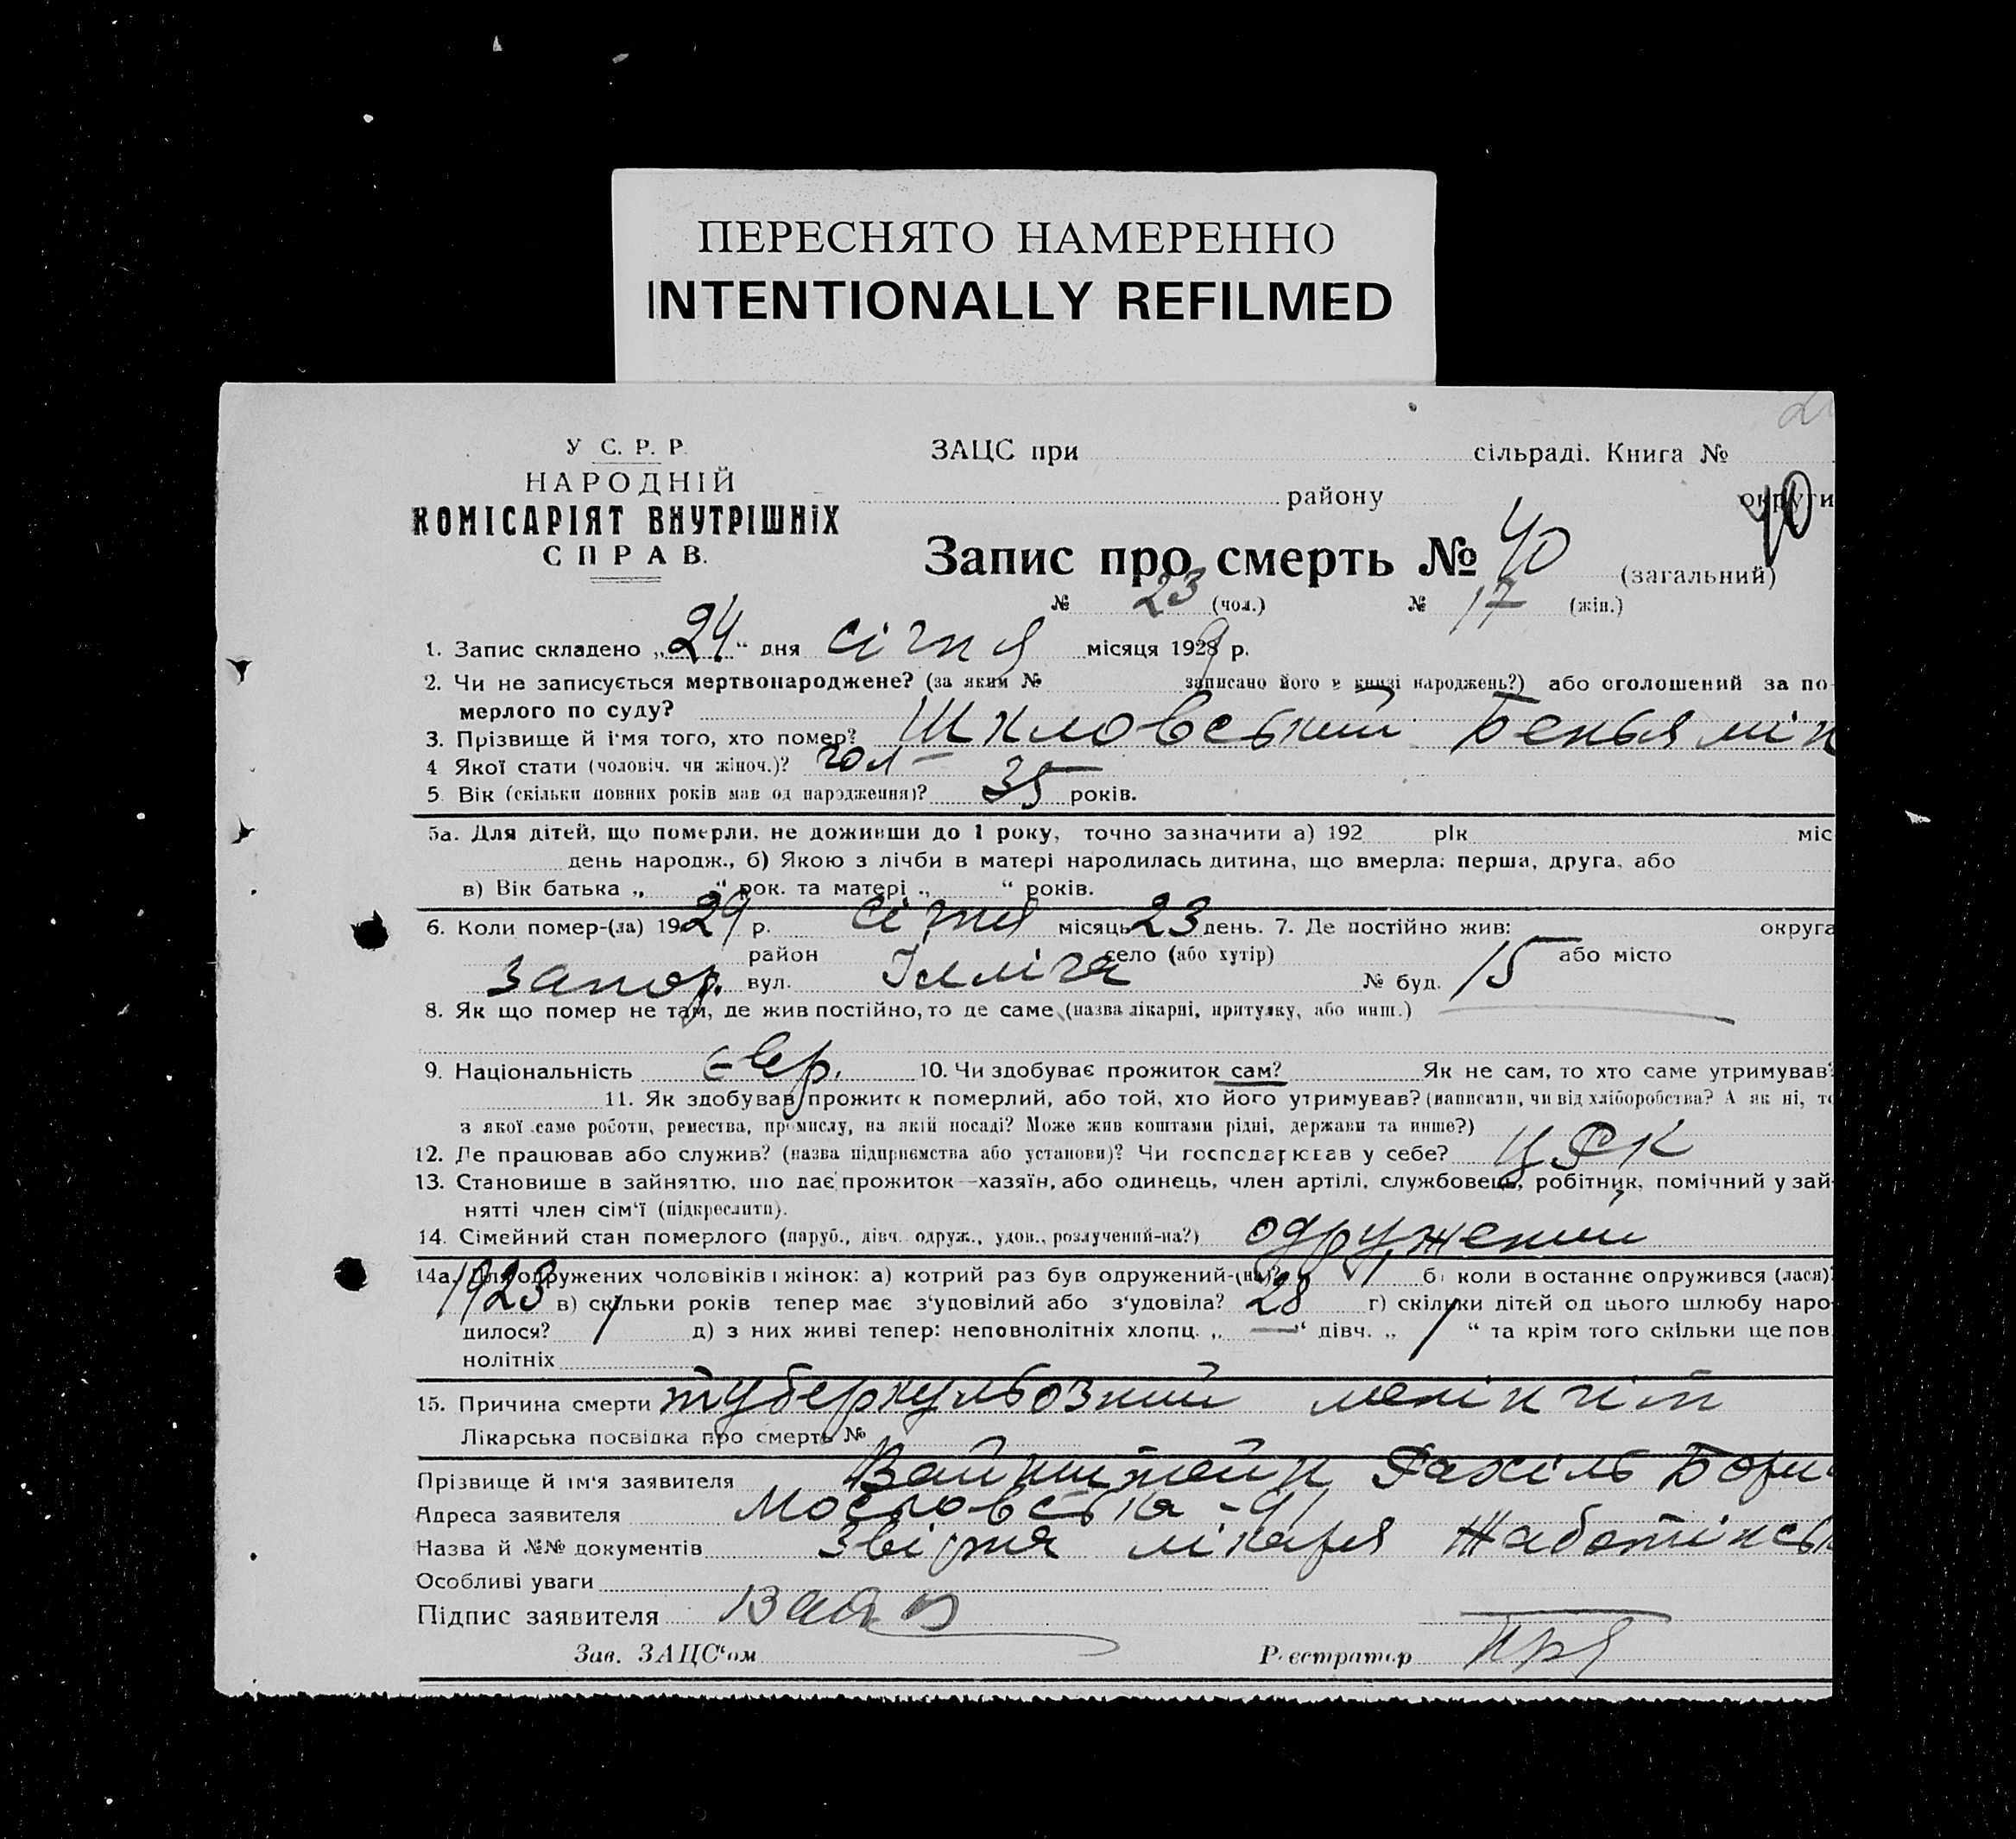 ПЕРЕСНЯТО НАМЕРЕННО
INTENTIONALLY REFILMED
У С. Р. Р.
НАРОДНІЙ
КОМІСАРІЯТ ВНУТРІШНІХ
СПРАВ.
ЗАЦС при сільраді. Книга №
району округи
40
Запис про смерть № 40 (загальний)
№ 23 (чол.) № 17 (жін.)
1. Запис складено „24“ дня січня місяця 1929 р.
2. Чи не записується мертвонароджене? (за яким № записано його в книзі народжень?) або оголошений за по-
мерлого по суду?
3. Прізвище й ім'я того, хто помер? Шкловський Беньямін
4 Якої стати (чоловіч. чи жіноч.)? чол —
5. Вік (скільки повних років мав од народження)? 35 років.
5а. Для дітей, що померли, не доживши до 1 року, точно зазначити а) 192 рік міс
день народж., б) Якою з лічби в матері народилась дитина, що вмерла: перша, друга, або
в) Вік батька „ “ рок. та матері „ “ років.
6. Коли помер-(ла) 1929 р. січня місяць 23 день. 7. Де постійно жив: округа
район село (або хутір) або місто
Запор. вул. Ілліча № буд. 15
8. Як що помер не там, де жив постійно, то де саме (назва лікарні, притулку, або инш.)
9. Національність євр. 10. Чи здобуває прожиток сам? Як не сам, то хто саме утримував?
11. Як здобував прожиток померлий, або той, хто його утримував? (написати, чи від хліборобства? А як ні, то
з якої саме роботи, ремества, промислу, на якій посаді? Може жив коштами рідні, держави та инше?)
12. Де працював або служив? (назва підприємства або установи)? Чи господарював у себе? ЦРК
13. Становище в зайняттю, що дає прожиток—хазяїн, або одинець, член артілі, службовець, робітник, помічний у зай-
нятті член сім'ї (підкреслити).
14. Сімейний стан померлого (паруб., дівч. одруж., удов., розлучений-на?) одружений
14а. Для одружених чоловіків і жінок: а) котрий раз був одружений-(на)? 1 б) коли востаннє одружився (лася)?
1923 в) скільки років тепер має з'удовілий або з'удовіла? 28 г) скільки дітей од цього шлюбу наро-
дилося? 1 д) з них живі тепер: неповнолітніх хлопц. „—“ дівч. „1“ та крім того скільки ще пов
нолітніх
15. Причина смерти туберкульозний менінгіт
Лікарська посвідка про смерть №
Прізвище й ім'я заявителя Вайнштейн Рахіль Бори
Адреса заявителя Московська - 9
Назва й №№ документів лікаря Жаботінськ
Особливі уваги
Підпис заявителя
Зав. ЗАЦС'ом Реєстратор